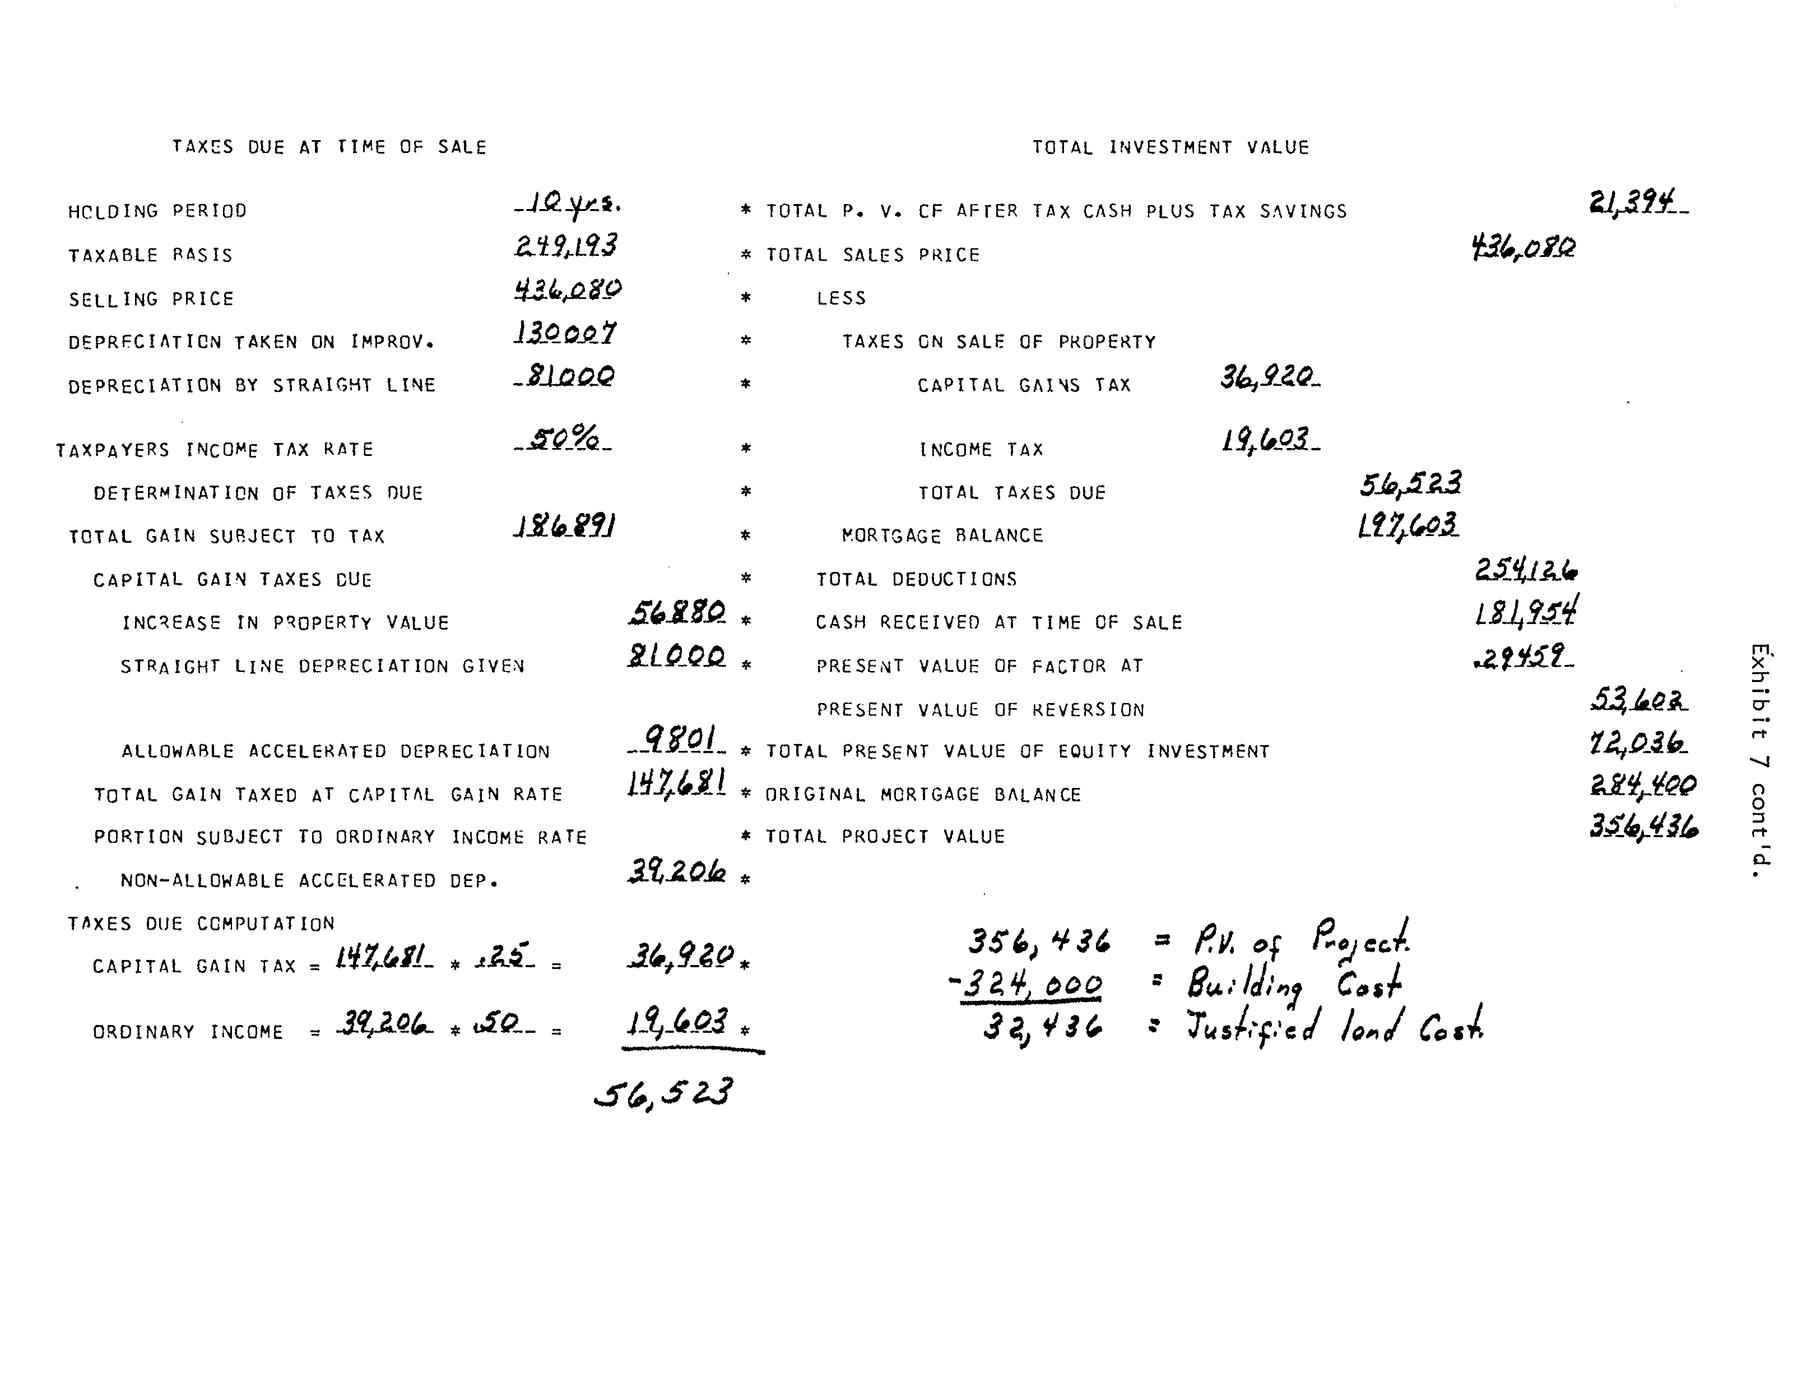 TAXES DUE AT TIME OF SALE
HOLDING PERIOD 10 yrs. *
TAXABLE BASIS 249,193 *
SELLING PRICE 436,080 *
DEPRECIATION TAKEN ON IMPROV. 130007 *
DEPRECIATION BY STRAIGHT LINE 81000 *
TAXPAYERS INCOME TAX RATE 50% *
DETERMINATION OF TAXES DUE *
TOTAL GAIN SUBJECT TO TAX 186891 *
CAPITAL GAIN TAXES DUE *
INCREASE IN PROPERTY VALUE 56880 *
STRAIGHT LINE DEPRECIATION GIVEN 81000 *
ALLOWABLE ACCELERATED DEPRECIATION 9801 *
TOTAL GAIN TAXED AT CAPITAL GAIN RATE 147,681 *
PORTION SUBJECT TO ORDINARY INCOME RATE *
NON-ALLOWABLE ACCELERATED DEP. 39,206 *
TAXES DUE COMPUTATION
CAPITAL GAIN TAX = 147,681 * .25 = 36,920 *
ORDINARY INCOME = 39,206 * .50 = 19,603 *
56,523
TOTAL INVESTMENT VALUE
TOTAL P. V. OF AFTER TAX CASH PLUS TAX SAVINGS 21,394
TOTAL SALES PRICE 436,080
LESS
TAXES ON SALE OF PROPERTY
CAPITAL GAINS TAX 36,920
INCOME TAX 19,603
TOTAL TAXES DUE 56,523
MORTGAGE BALANCE 197,603
TOTAL DEDUCTIONS 254,126
CASH RECEIVED AT TIME OF SALE 181,954
PRESENT VALUE OF FACTOR AT .29459
PRESENT VALUE OF REVERSION 53,602
TOTAL PRESENT VALUE OF EQUITY INVESTMENT 72,036
ORIGINAL MORTGAGE BALANCE 284,400
TOTAL PROJECT VALUE 356,436
356,436 = P.V. of Project.
-324,000 = Building Cost
32,436 = Justified land Cost.
Exhibit 7 cont'd.